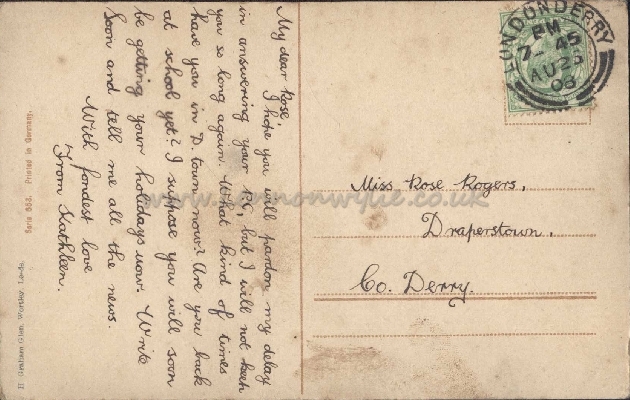 My dear Rose,
I hope you will pardon my delay
in answering your P.C, but I will not keep
you so long again. What kind of times
have you in D. town now? Are you back
at school yet? I suppose you will soon
be getting your holidays now. Write
soon and tell me all the news.
With fondest love
From Kathleen.
Miss Rose Rogers,
Draperstown,
Co. Derry.
LONDONDERRY
PM
7 45
AU 23
Printed in Germany.
H. Graham Glen, Wortley, Leeds.